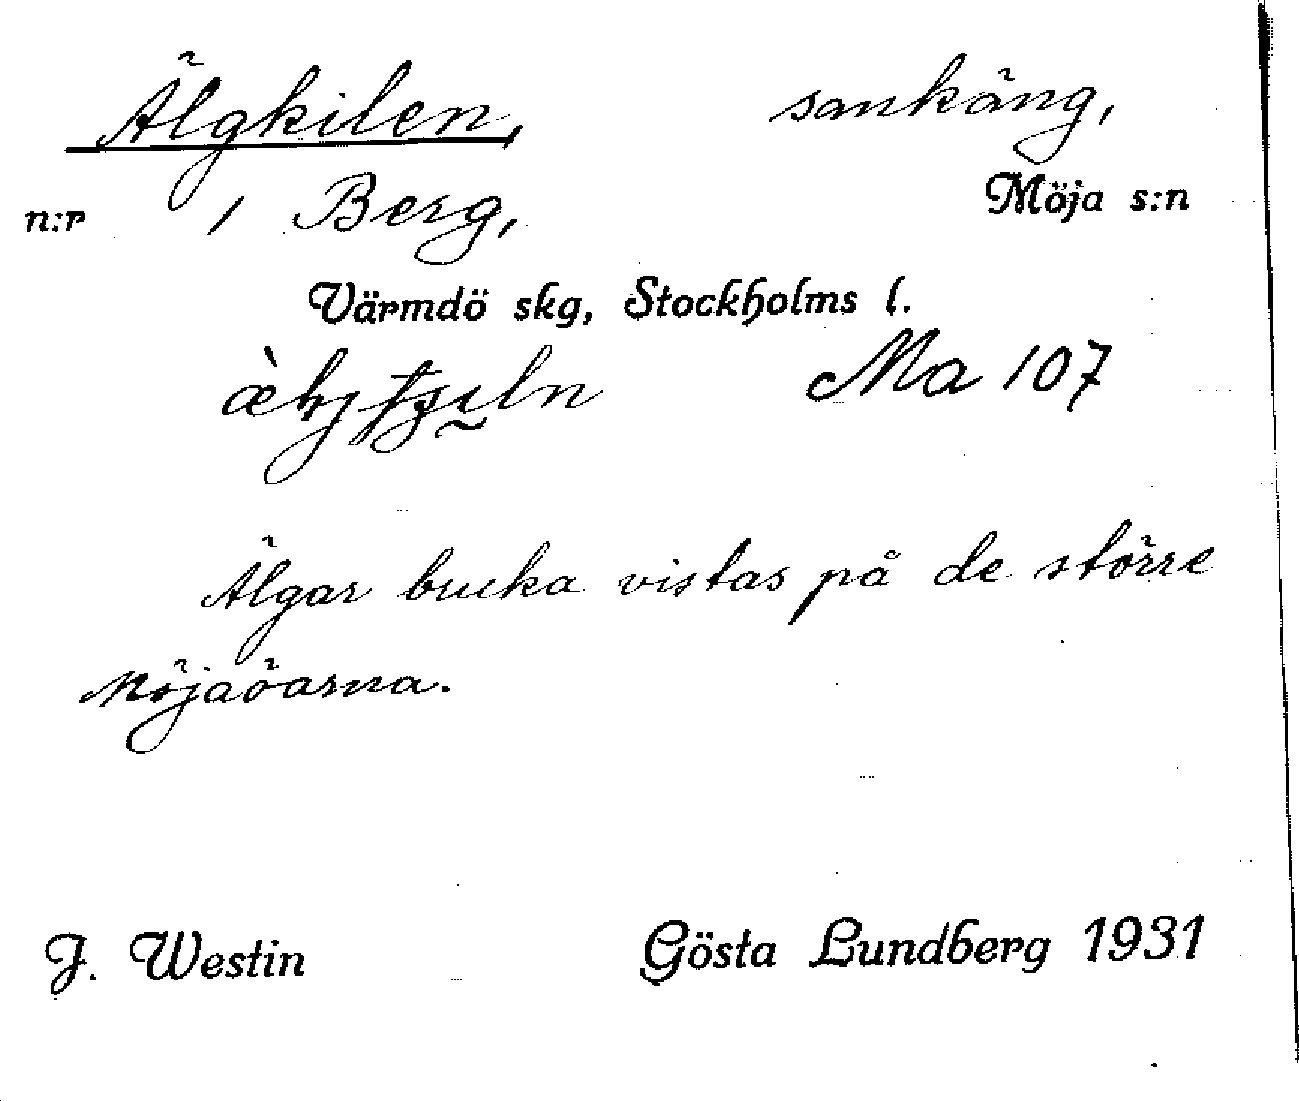 Älgkilen, sankäng,
n:r 1 Berg, Möja s:n
Värmdö skg, Stockholms l.
Ma 107
Älgar bruka vistas på de större
Möjaöarna.
J. Westin Gösta Lundberg 1931